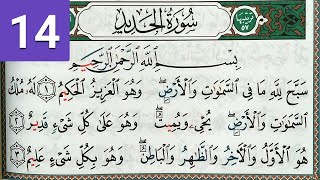 14
سُورَةُ الْحَدِيدِ
بِسْمِ اللَّهِ الرَّحْمَٰنِ الرَّحِيمِ
سَبَّحَ لِلَّهِ مَا فِي السَّمَاوَاتِ وَالْأَرْضِ ۖ وَهُوَ الْعَزِيزُ الْحَكِيمُ ١ لَهُ مُلْكُ
السَّمَاوَاتِ وَالْأَرْضِ ۖ يُحْيِي وَيُمِيتُ ۖ وَهُوَ عَلَىٰ كُلِّ شَيْءٍ قَدِيرٌ ٢
هُوَ الْأَوَّلُ وَالْآخِرُ وَالظَّاهِرُ وَالْبَاطِنُ ۖ وَهُوَ بِكُلِّ شَيْءٍ عَلِيمٌ ٣